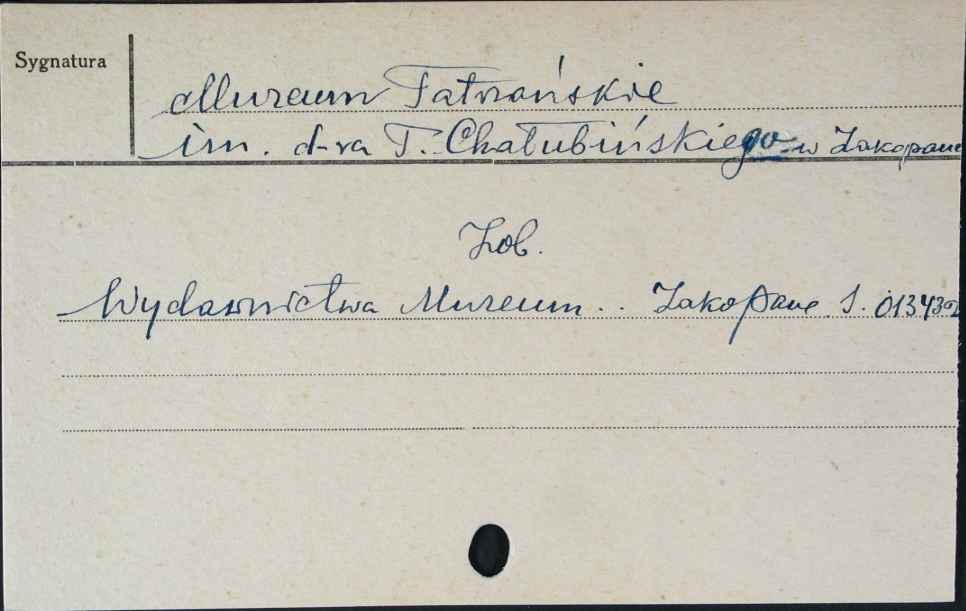 Sygnatura
Muzeum Tatrzańskie
im. d-ra T. Chałubińskiego w Zakopane
Zob.
Wydawnictwa Muzeum .. Zakopane S. 013430